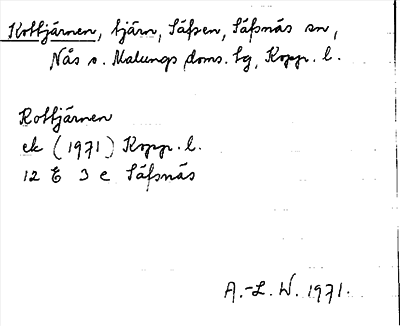 Rottjärnen, tjärn, Säfsen, Säfsnäs sn,
Nås o. Malungs doms. tg, Kopp. l.
Rottjärnen
ek (1971) Kopp. l.
12 E 3 e Säfsnäs
A.-L. W. 1971.